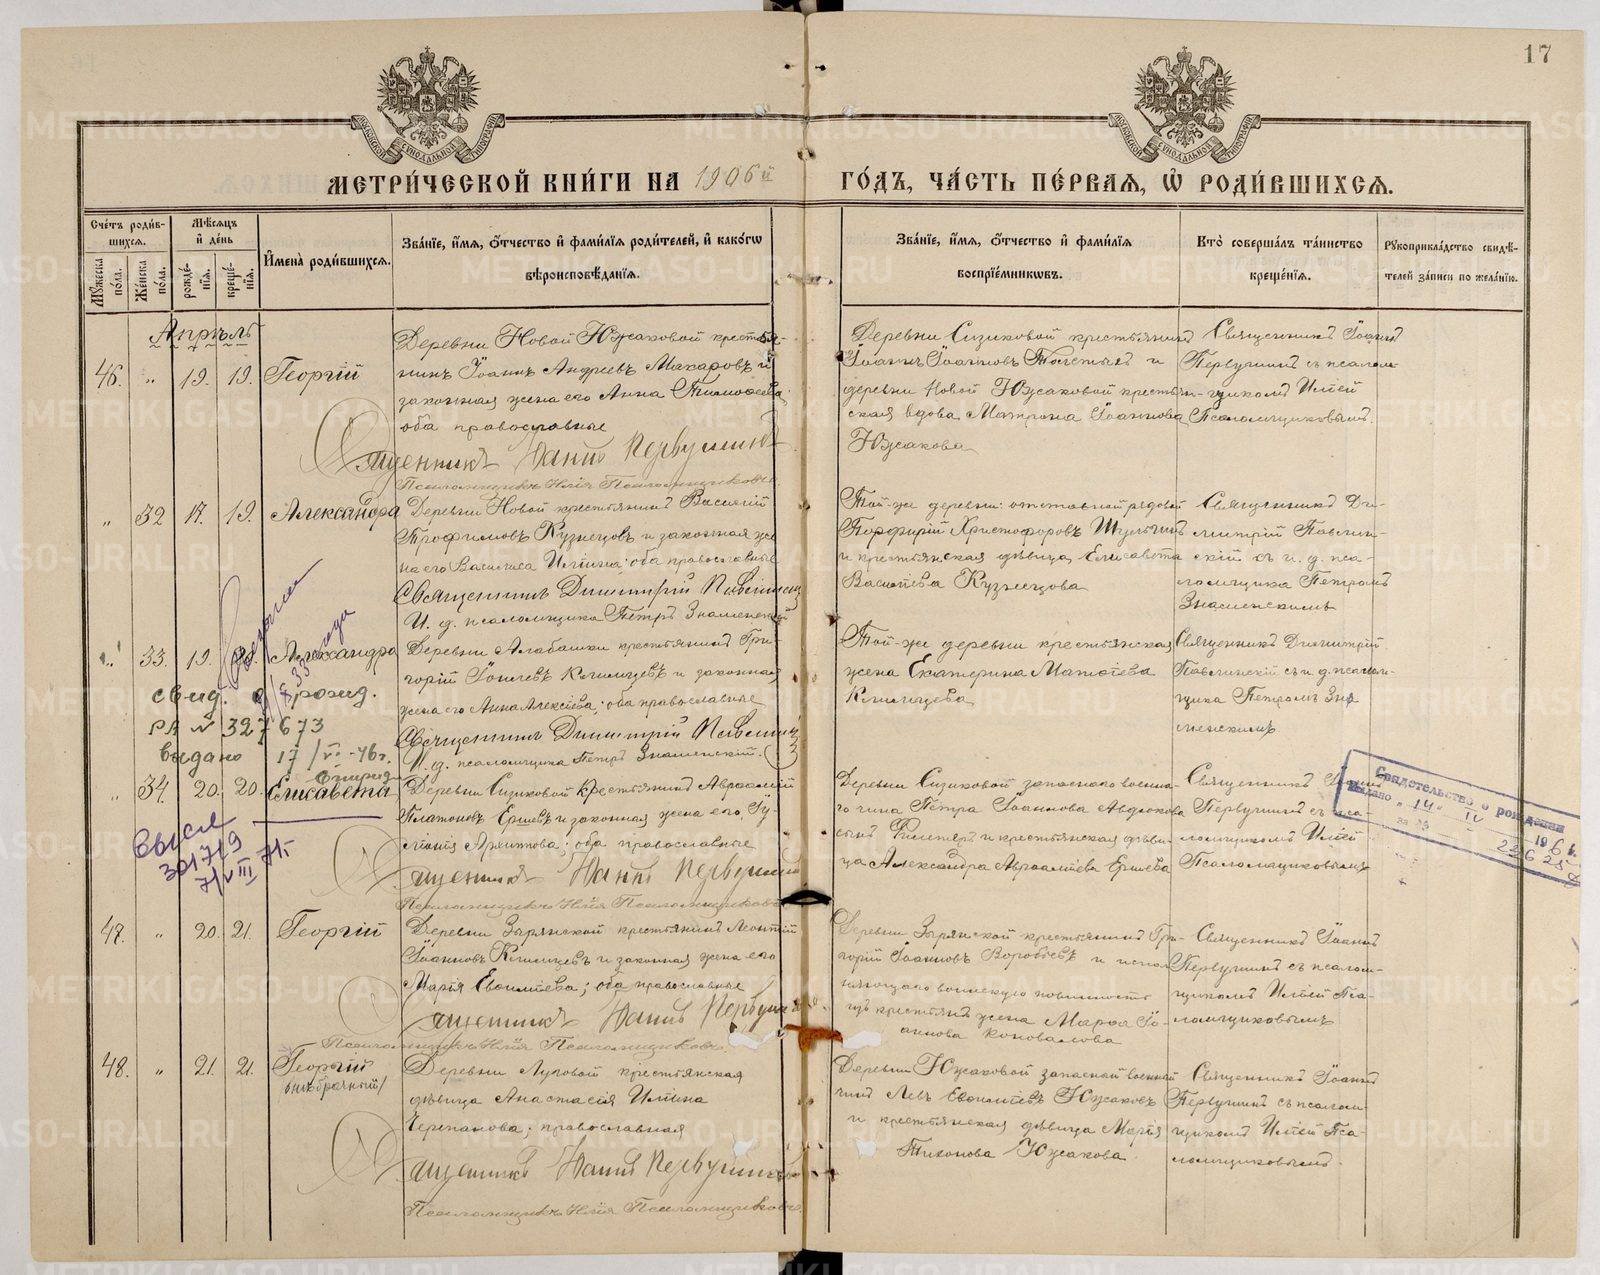 17
МЕТРИ́ЧЕСКОЙ КНИ́ГИ НА 1906й ГО́ДЪ, ЧА́СТЬ ПЕ́РВАЯ, Ѿ РОДИ́ВШИХСЯ.
Сче́тъ роди́в-
шихся.
Мꙋ́жеска по́ла.
Же́нска по́ла.
Мѣ́сяцъ
и҆ де́нь
рожде́-
нїя.
креще́-
нїя.
И҆мена̀ роди́вшихся.
Зва́нїе, и҆́мя, ѻ҆́тчество и҆ фами́лїя роди́телей, и҆ како́гѡ
вѣроисповѣ́данїя.
Зва́нїе, и҆́мя, ѻ҆́тчество и҆ фами́лїя
воспрїе́мникѡвъ.
Кто̀ соверша́лъ та́инство
креще́нїя.
Рꙋкоприкла́дство свидѣ́-
телей за́писи по жела́нїю.
Апрѣль
46. " 19. 19. Георгій
Деревни Новой Южаковой крестья-
нинъ Іоаннъ Андреевъ Макаровъ и
законная жена его Анна Тимоѳеева;
оба православные
Священникъ Іоаннъ Первушинъ
Псаломщикъ Илія Псаломщиковъ
Деревни Сизиковой крестьянинъ
Іоаннъ Іоанновъ Толстыхъ и
деревни Новой Южаковой крестьян-
ская вдова Матрона Іоаннова
Южакова
Священникъ Іоаннъ
Первушинъ съ псалом-
щикомъ Иліей
Псаломщиковымъ.
" 32 17. 19. Александра
Деревни Новой крестьянинъ Василій
Трофимовъ Кузнецовъ и законная же-
на его Василиса Иліина; оба православные
Священникъ Димитрій Павлинскій
И. д. псаломщика Петръ Знаменскій
Той-же деревни: отставной рядовой
Порфирій Христофоровъ
и крестьянская дѣвица Елисавета
Васильева Кузнецова
Священникъ Ди-
митрій Павлин-
скій съ и. д. пса-
ломщика Петромъ
Знаменскимъ
" 33. 19. Александра
Деревни Алабашки крестьянинъ Гри-
горій Клишцевъ и законная
жена его Анна Алексіева; оба православные
Священникъ Димитрій Павлинскій
И. д. псаломщика Петръ Знаменскій.
Той-же деревни крестьянская
жена Екатерина Матѳіева
Священникъ Димитрій
Павлинскій съ и. д. псалом-
щика Петромъ Зна-
менскимъ
свид. о рожд.
РА № 327673
выдано 17/VI-46г.
" 34. 20. 20. Елисавета
Деревни Сизиковой крестьянинъ Авраамій
Платоновъ Ершевъ и законная жена его Іу-
ліанія Архиппова; оба православные
Священникъ Іоаннъ Первушинъ
Псаломщикъ Илія Псаломщиковъ
Деревни Сизиковой запаснаго воинска-
го чина Петра Іоаннова Авдюкова
сынъ Филиппъ и крестьянская дѣви-
ца Александра Авраамiева Ершева
Священникъ Іоаннъ
Первушинъ съ пса-
ломщикомъ Иліей
Псаломщиковымъ
Свидетельство о рождении
выдано "14" IV 1966
301719
7/VIII 71г
47. " 20. 21. Георгій
Деревни Зырянской крестьянинъ Леонтій
Іоанновъ Клишцевъ и законная жена его
Марія Евѳиміева; оба православные
Священникъ Іоаннъ Первушинъ
Псаломщикъ Илія Псаломщиковъ.
Деревни Зырянской крестьянинъ Гри-
горій Іоанновъ Воробьевъ и испол-
няющаго воинскую повинность
изъ крестьянъ жена Марѳа Іо-
аннова Коновалова
Священникъ Іоаннъ
Первушинъ съ псалом-
щикомъ Иліей Пса-
ломщиковымъ
48. " 21. 21. Георгій
внѣбрачный/
Деревни Луговой крестьянская
дѣвица Анастасія Иліина
Черепанова; православная
Священникъ Іоаннъ Первушинъ
Псаломщикъ Илія Псаломщиковъ
Деревни Южаковой запасной военный
чинъ Левъ Евѳиміевъ Южаковъ
и крестьянская дѣвица Марія
Тихонова Южакова
Священникъ Іоаннъ
Первушинъ съ псалом-
щикомъ Иліей Пса-
ломщиковымъ.
METRIKI.GASO-URAL.RU